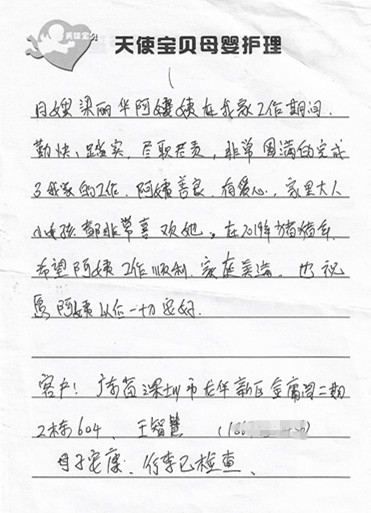 天使宝贝
天使宝贝母婴护理
月嫂梁丽华阿姨在我家工作期间,
勤快、踏实、尽职尽责,非常圆满的完成
了我家的工作。阿姨善良、有爱心,家里大人
小孩都非常喜欢她。在2019年猪猪年
希望阿姨工作顺利、家庭美满。也祝
愿阿姨以后一切安好.
客户:广东省深圳市龙华新区金庸阁二期
2栋604、王智慧 (166
母子安康、行李已检查、